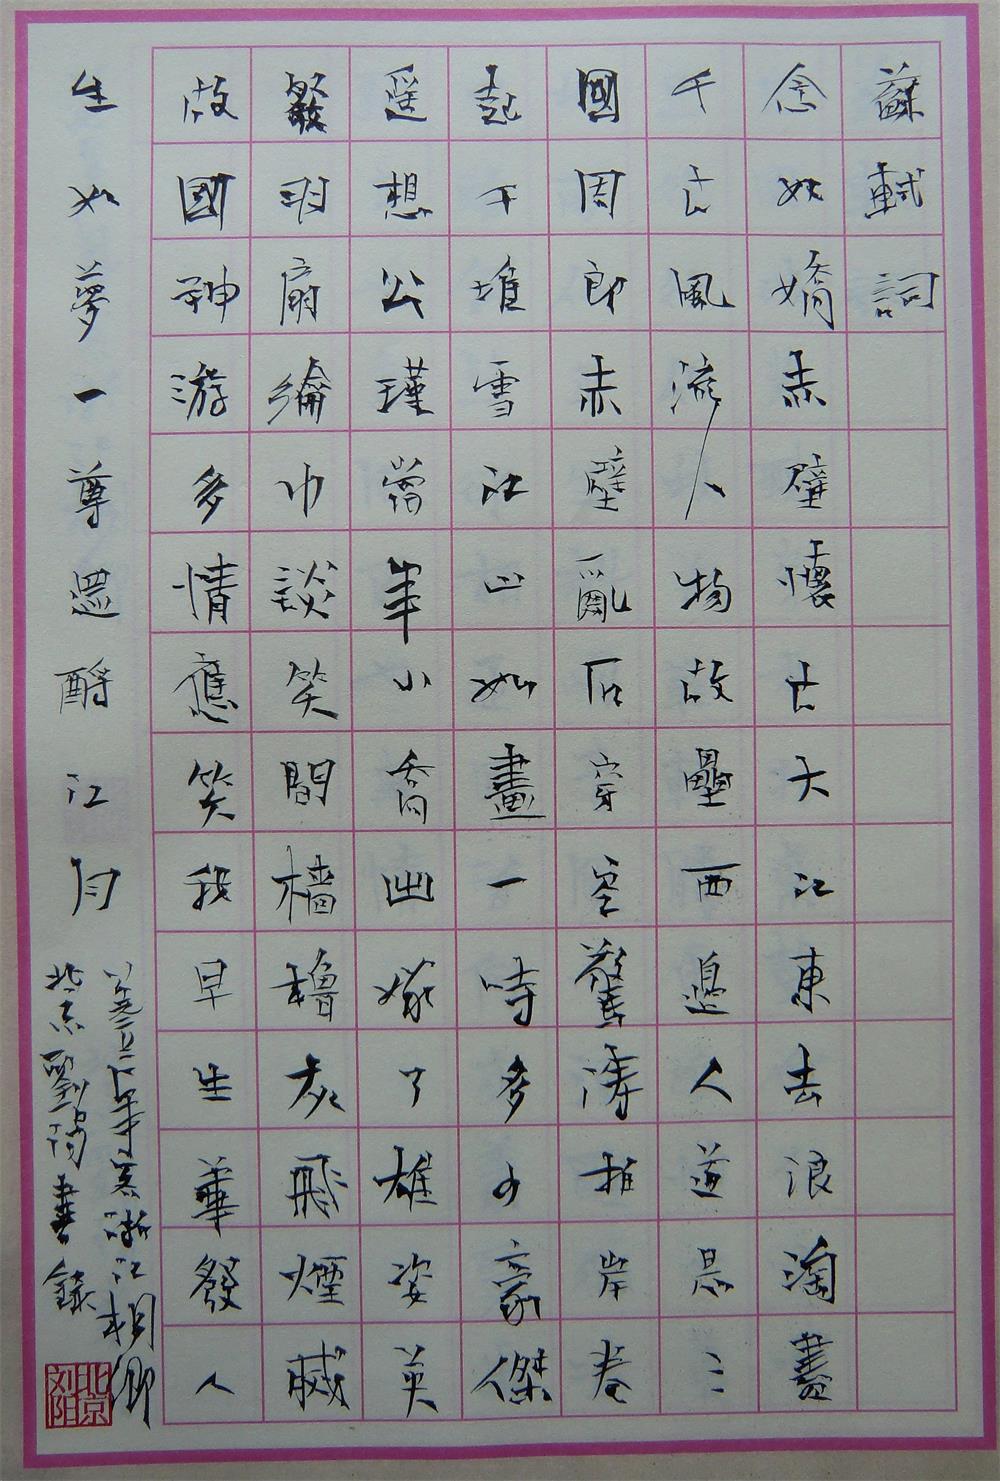 蘇軾詞
念奴嬌赤壁懷古大江東去浪淘盡
千古風流人物故壘西邊人道是三
國周郎赤壁亂石穿空驚濤拍岸卷
起千堆雪江山如畫一時多少豪傑
遥想公瑾當年小喬出嫁了雄姿英
發羽扇綸巾談笑間檣櫓灰飛煙滅
故國神游多情應笑我早生華發人
生如夢一尊還酹江月
年於浙江桐鄉
北京劉陽書錄
北京刘阳